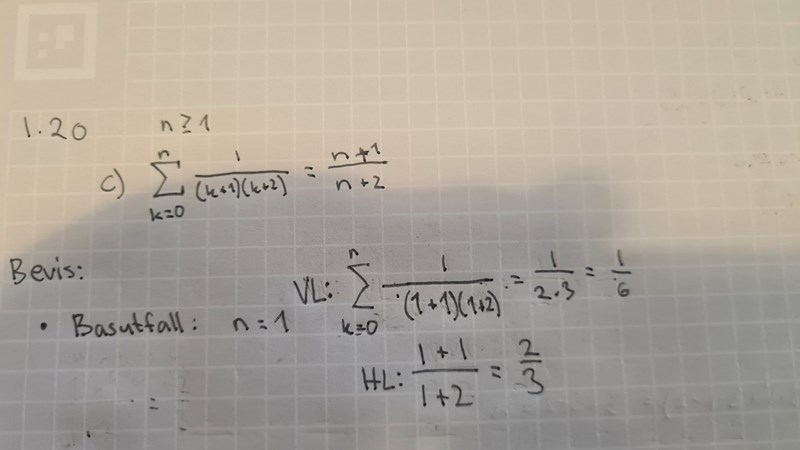 1.20 n≥1
c) \sum_{k=0}^{n} \frac{1}{(k+1)(k+2)} = \frac{n+1}{n+2}
Bevis:
• Basutfall: n=1 VL: \sum_{k=0}^{n} \frac{1}{(1+1)(1+2)} = \frac{1}{2·3} = \frac{1}{6}
HL: \frac{1+1}{1+2} = \frac{2}{3}
=